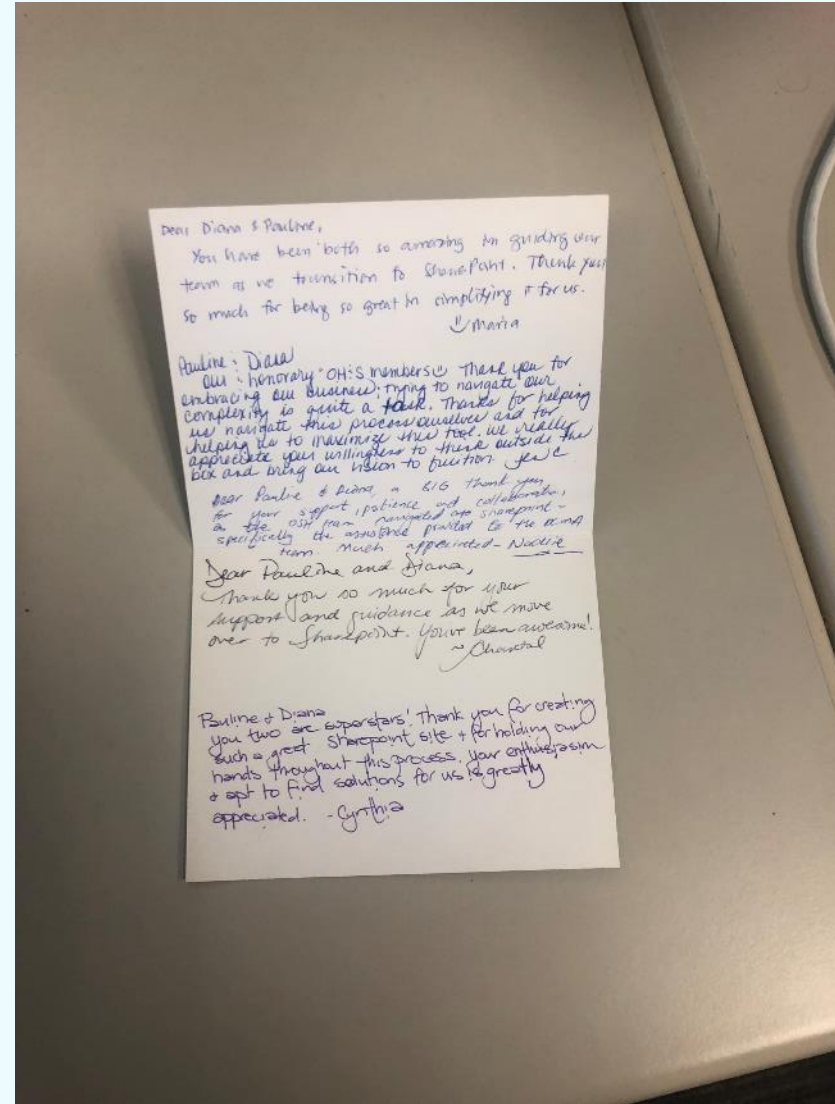 Dear Diana & Pauline,
You have been both so amazing in guiding our
team as we transition to SharePoint. Thank you
so much for being so great in simplifying it for us.
Maria
Pauline & Diana
Our honorary OHS members Thank you for
embracing our business. trying to navigate our
complexity is quite a task. Thanks for helping
us navigate this process ourselves and for
helping us to maximize this tool. we really
appreciate your willingness to think outside the
box and bring our vision to fruition. Jen C
Dear Pauline & Diana, a BIG thank you
for your support, patience and collaboration,
as the OSH team navigated into sharepoint -
specifically the assistance provided to the
team. Much appreciated -
Dear Pauline and Diana,
Thank you so much for your
support and guidance as we move
over to Sharepoint. You've been awesome!
~ Chantal
Pauline & Diana
You two are superstars! Thank you for creating
such a great Sharepoint site & for holding our
hands throughout this process. Your enthusiasim
& apt to find solutions for us is greatly
appreciated. - Cynthia